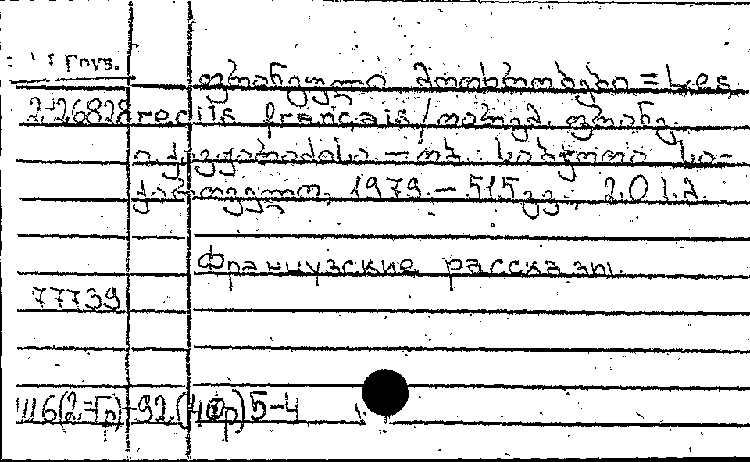 Груз.
ფრანგული მოთხრობები = Les
2-26828 recits français / თარგმ. ფრანგ.
ი. ქავჟარაძისა — თბ.: საბჭოთა სა-
ქართველო, 1979. — 515გვ.; 2.01.მ.
Французские рассказы.
77739
И6(2=Гр)-92.(4Фр)5-4